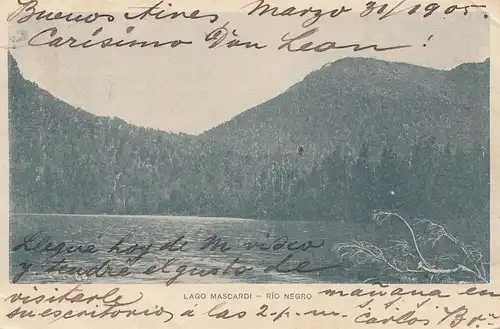 Buenos Aires Marzo 31/1905.
Carísimo Don Leon!
Llegué hoy de M video
y tendré el gusto de
LAGO MASCARDI — RÍO NEGRO
visitarle mañana en
su escritorio a las 2 p.m. Carlos